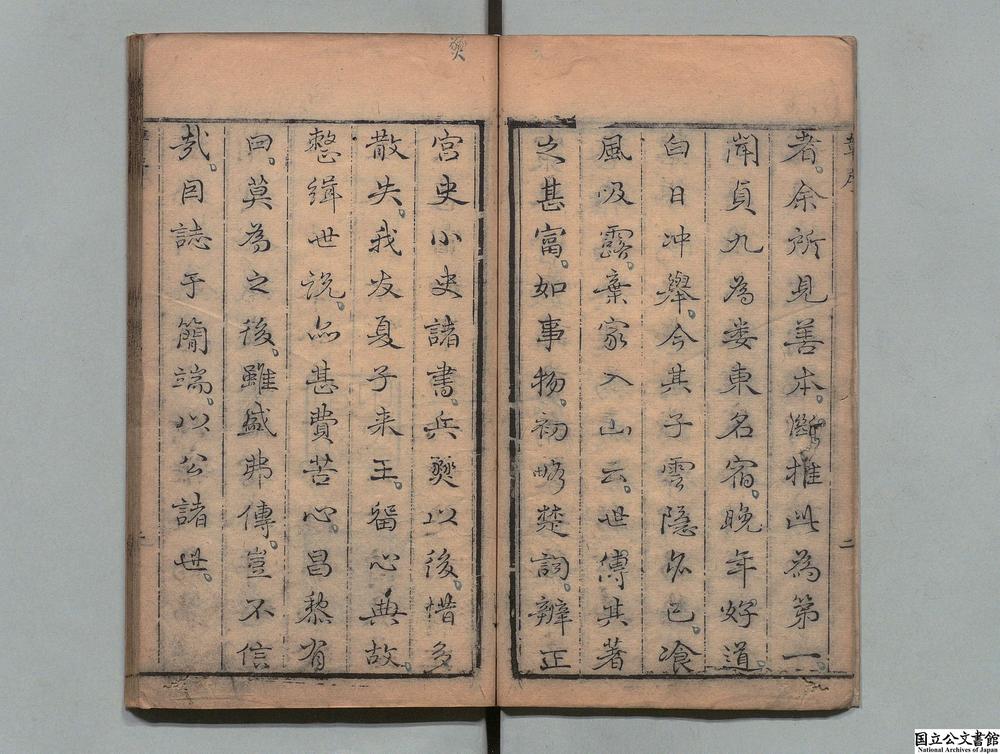 者。余所見善本。斷推此為第一。
聞貞九為婁東名宿。晚年好道。
白日冲舉。今其子雲隱亦已。飡
風吸露。棄家入山云。世傳其著
之甚富。如事物。初略楚詞。辨正
二
燹
宮史小史諸書。兵燹以後。惜多
散失。我友夏子来王。留心典故。
整緝世説。亦甚費苦心。昌黎有
曰。莫為之後。雖盛弗傳。豈不信
哉。因誌于簡端。以公諸世。
国立公文書館
National Archives of Japan